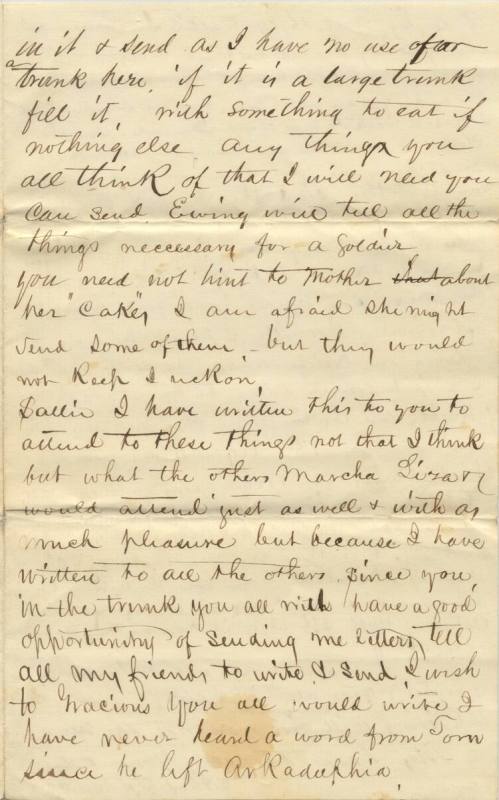 in it & send as I have no use of a
a trunk here, if it is a large trunk
fill it, with something to eat if
nothing else any things you
all think of that I will need you
can send. Ewing will tell all the
things neccessary for a soldier
you need not hint to Mother about
her "Cakes" I am afraid she might
send some of them, - but they would
not keep I reckon,
Sallie I have written this to you to
attend to these things not that I think
but what the others Marcha Liza &
would attend just as well & with as
much pleasure but because I have
written to all the others, since you,
in the trunk you all will have a good
opportunity of sending me letters, tell
all my friends to write & send, I wish
to Gracious you all would write I
have never heard a word from Tom
since he left Arkadelphia,